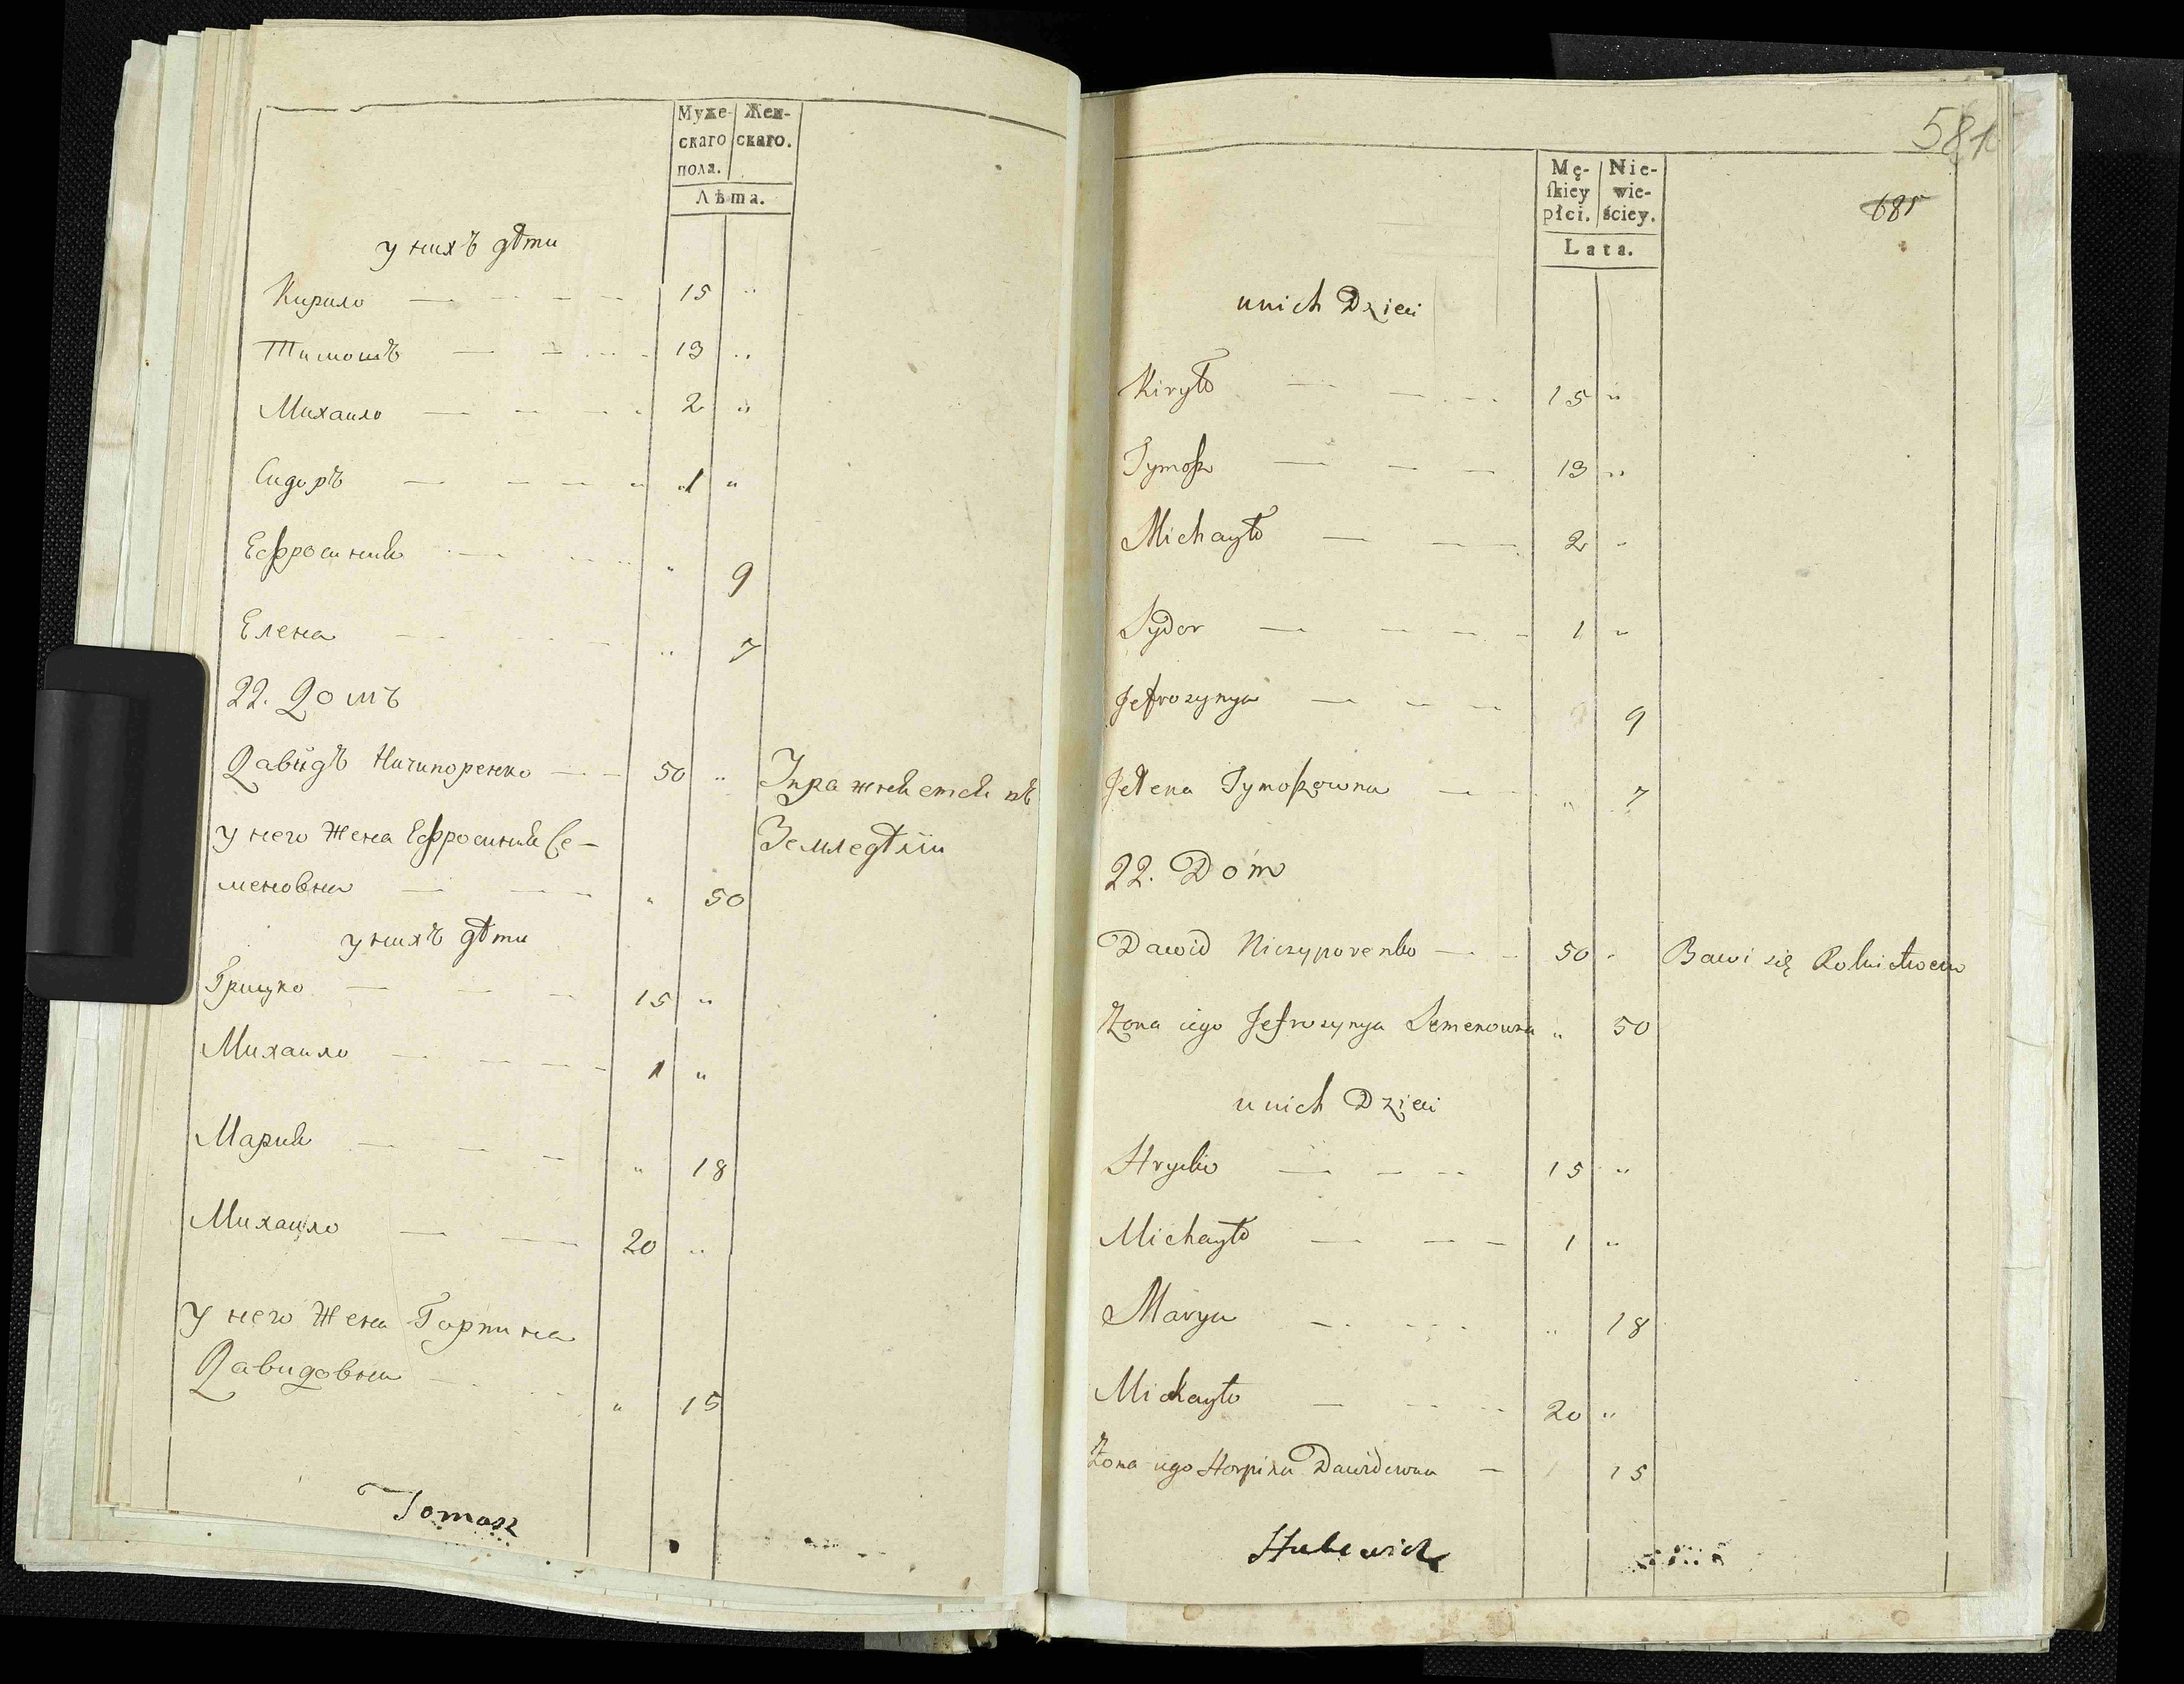 Муже- Жен-
скаго скаго.
пола.
Лѣта.
у нихъ дѣти
Кирило — — — — 15 „
Тимошъ — — — 13 „
Михаило — — — 2 „
Сидоръ — — — — 1 „
Ефросинія — — „ 9
Елена — — — „ 7
22. Домъ
Давидъ Ничипоренко — — 50 „ Упражняется въ
у него жена Ефросинія Се- Земледѣліи
меновна — — — „ 50
у нихъ дѣти
Грицко — — — 15 „
Михаило — — — — 1 „
Марія — — — „ 18
Михаило — — 20 „
у него жена Горпина
Давидовна — — „ 15
Tomasz
581
685
Mę- Nie-
ſkiey wie-
płci. ściey.
Lata.
u nich Dzieci
Kiryło — — — 15 „
Tymosz — — — 13 „
Michayło — — — 2 „
Sydor — — — — 1 „
Jefrozynya — — — 9
Jełena Tymoszowna — „ 7
22. Dóm
Dawid Niczyporenko — — 50 „ Bawi się Rolnictwem
Żona iego Jefrozynya Semenowna „ 50
u nich Dzieci
Hrycko — — — 15 „
Michayło — — — 1 „
Marya — — „ 18
Michayło — — — 20 „
Żona iego Horpina Dawidowna — 15